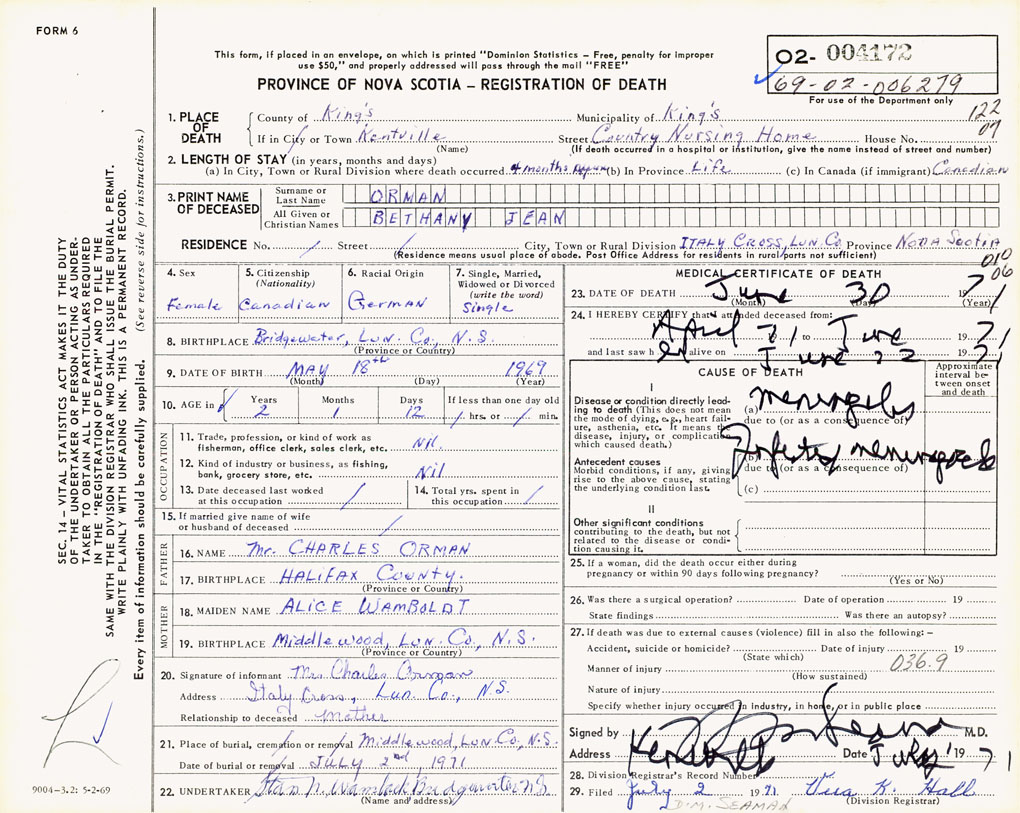 FORM 6
This form, if placed in an envelope, on which is printed "Dominion Statistics – Free, penalty for improper
use $50," and properly addressed will pass through the mail "FREE"
PROVINCE OF NOVA SCOTIA – REGISTRATION OF DEATH
02- 004172
69-02-006279
For use of the Department only
122
07
1. PLACE OF DEATH
County of King's Municipality of King's
If in City or Town Kentville Street Country Nursing Home House No.
(Name) (If death occurred in a hospital or institution, give the name instead of street and number)
2. LENGTH OF STAY (in years, months and days)
(a) In City, Town or Rural Division where death occurred 4 months (b) In Province Life (c) In Canada (if immigrant) Canadian
3. PRINT NAME OF DECEASED
Surname or Last Name ORMAN
All Given or Christian Names BETHANY JEAN
RESIDENCE No. / Street / City, Town or Rural Division ITALY CROSS, LUN. CO Province NOVA SCOTIA
(Residence means usual place of abode. Post Office Address for residents in rural parts not sufficient)
010
06
4. Sex
Female
5. Citizenship
(Nationality)
Canadian
6. Racial Origin
GERMAN
7. Single, Married,
Widowed or Divorced
(write the word)
Single
8. BIRTHPLACE Bridgewater, Lun. Co., N.S.
(Province or Country)
9. DATE OF BIRTH MAY 18th 1969
(Month) (Day) (Year)
10. AGE in Years 2 Months 1 Days 12 If less than one day old
/ hrs. or / min.
OCCUPATION
11. Trade, profession, or kind of work as
fisherman, office clerk, sales clerk, etc. Nil.
12. Kind of industry or business, as fishing,
bank, grocery store, etc. Nil
13. Date deceased last worked
at this occupation /
14. Total yrs. spent in
this occupation /
15. If married give name of wife
or husband of deceased /
FATHER
16. NAME Mr. CHARLES ORMAN
17. BIRTHPLACE HALIFAX COUNTY.
(Province or Country)
MOTHER
18. MAIDEN NAME ALICE WAMBOLDT
19. BIRTHPLACE Middlewood, Lun. Co., N.S.
(Province or Country)
20. Signature of informant Mrs Charles Orman
Address Italy Cross, Lun. Co., N.S.
Relationship to deceased Mother
21. Place of burial, cremation or removal Middlewood, Lun. Co., N.S.
Date of burial or removal JULY 2nd 1971
22. UNDERTAKER Bridgewater N.S.
(Name and address)
MEDICAL CERTIFICATE OF DEATH
23. DATE OF DEATH June 30 1971
(Month) (Day) (Year)
24. I HEREBY CERTIFY that I attended deceased from:
April 71 to June 1971
and last saw her alive on June 22 1971
CAUSE OF DEATH
Approximate
interval be-
tween onset
and death
I
Disease or condition directly lead-
ing to death (This does not mean
the mode of dying, e.g., heart fail-
ure, asthenia, etc. It means the
disease, injury, or complication
which caused death.)
(a)
due to (or as a consequence of)
Antecedent causes
Morbid conditions, if any, giving
rise to the above cause, stating
the underlying condition last.
(b)
due to (or as a consequence of)
(c)
II
Other significant conditions
contributing to the death, but not
related to the disease or condi-
tion causing it.
25. If a woman, did the death occur either during
pregnancy or within 90 days following pregnancy?
(Yes or No)
26. Was there a surgical operation? Date of operation 19
State findings Was there an autopsy?
27. If death was due to external causes (violence) fill in also the following:–
Accident, suicide or homicide? Date of injury 19
(State which)
Manner of injury 036.9
(How sustained)
Nature of injury
Specify whether injury occurred in industry, in home, or in public place
Signed by M.D.
Address Kentville Date July 1 1971
28. Division Registrar's Record Number
29. Filed July 2 1971 Vera K. Hall
D.M. SEAMAN (Division Registrar)
SEC. 14 – VITAL STATISTICS ACT MAKES IT THE DUTY
OF THE UNDERTAKER OR PERSON ACTING AS UNDER-
TAKER TO OBTAIN ALL THE PARTICULARS REQUIRED
IN THE "REGISTRATION OF DEATH" AND TO FILE THE
SAME WITH THE DIVISION REGISTRAR WHO SHALL ISSUE THE BURIAL PERMIT.
WRITE PLAINLY WITH UNFADING INK. THIS IS A PERMANENT RECORD.
Every item of information should be carefully supplied. (See reverse side for instructions.)
9004-3.2: 5-2-69